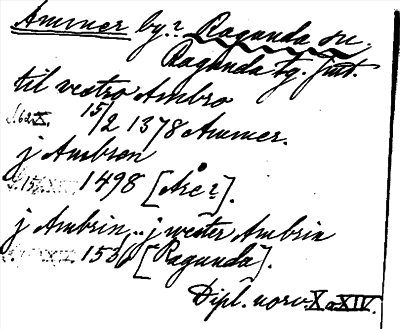 Ammer by.? Ragunda sn.
Ragunda tg. Jmt.
til vestro Ambro
S. 62 X. 15/2 1378 Ammer.
j Ambron
1498 [Åre?].
j Ambrin, .. j wester Ambrin
1536 [Ragunda].
Dipl. norv. X o XIV.